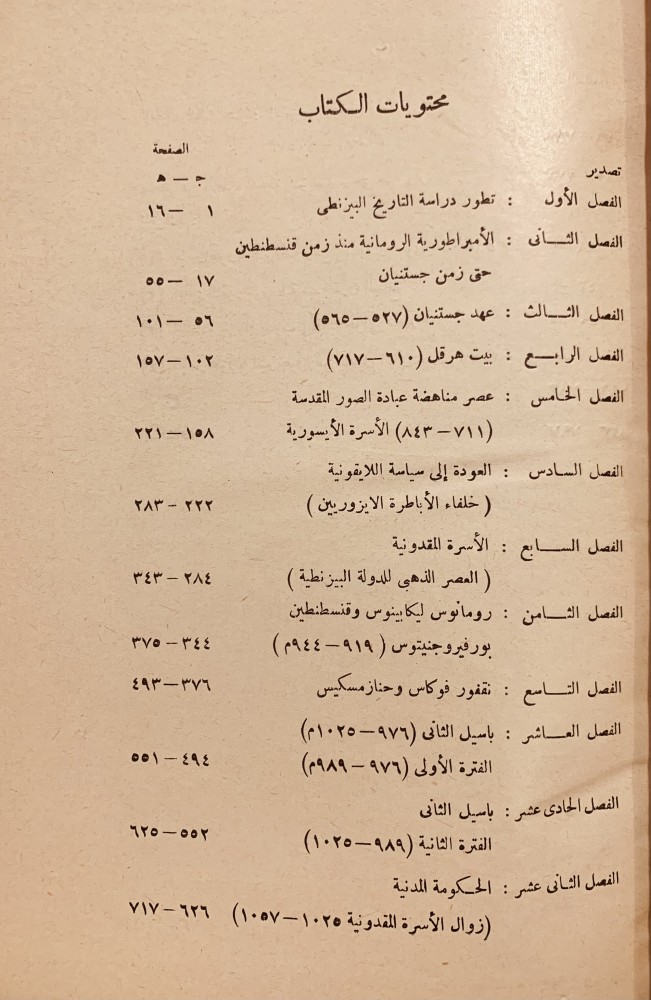 محتويات الكتاب
الصفحة
تصدير ج — ه
الفصل الأول : تطور دراسة التاريخ البيزنطى ١ — ١٦
الفصل الثانى : الأمبراطورية الرومانية منذ زمن قنسطنطين
حتى زمن جستنيان ١٧ — ٥٥
الفصل الثالث : عهد جستنيان (٥٢٧ — ٥٦٥) ٥٦ — ١٠١
الفصل الرابع : بيت هرقل (٦١٠ — ٧١٧) ١٠٢ — ١٥٧
الفصل الخامس : عصر مناهضة عبادة الصور المقدسة
(٧١١ — ٨٤٣) الأسرة الأيسورية ١٥٨ — ٢٢١
الفصل السادس : العودة إلى سياسة اللايقونية
( خلفاء الأباطرة الايزوريين ) ٢٢٢ — ٢٨٣
الفصل السابع : الأسرة المقدونية
( العصر الذهبى للدولة البيزنطية ) ٢٨٤ — ٣٤٣
الفصل الثامن : رومانوس ليكابينوس وقنسطنطين
بورفيروجنيتوس ( ٩١٩ — ٩٤٤م ) ٣٤٤ — ٣٧٥
الفصل التاسع : نقفور فوكاس وحنازمسكيس ٣٧٦ — ٤٩٣
الفصل العاشر : باسيل الثانى (٩٧٦ — ١٠٢٥م)
الفترة الأولى (٩٧٦ — ٩٨٩م) ٤٩٤ — ٥٥١
الفصل الحادى عشر : باسيل الثانى
الفترة الثانية (٩٨٩ — ١٠٢٥) ٥٥٢ — ٦٢٥
الفصل الثانى عشر : الحكومة المدنية
(زوال الأسرة المقدونية ١٠٢٥ — ١٠٥٧) ٦٢٦ — ٧١٧